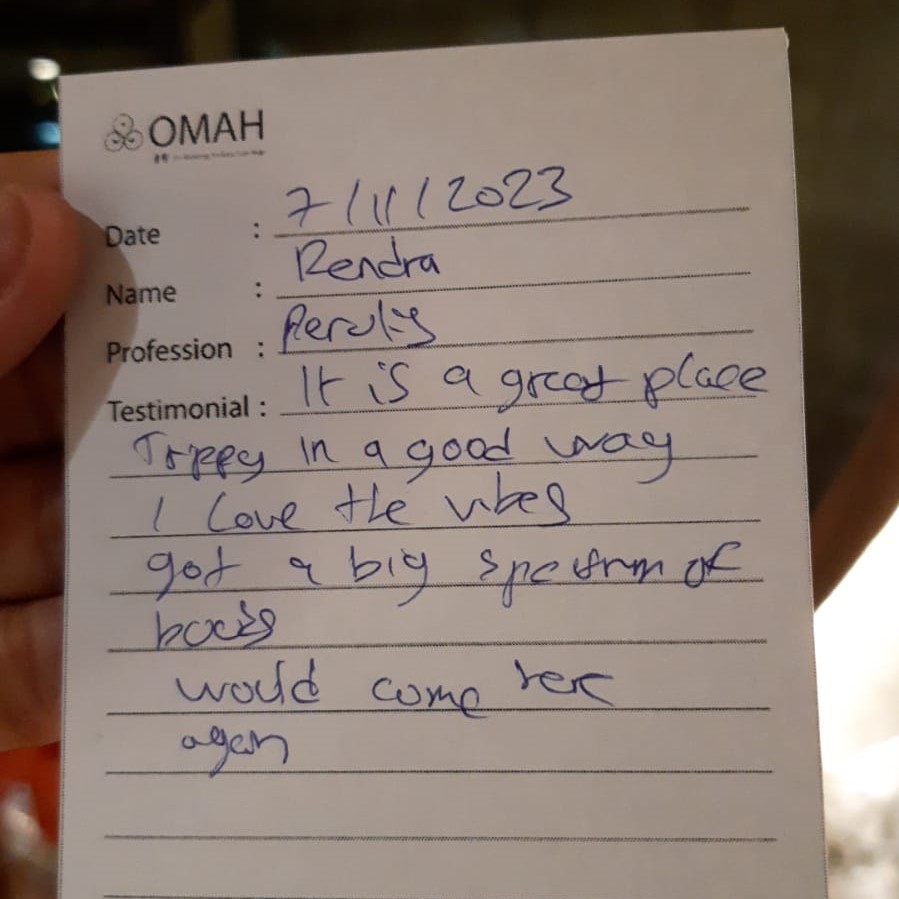 OMAH
Date : 7/11/2023
Name : Rendra
Profession :
Testimonial : It is a great place
Trippy in a good way
I Love the vibes
got a big spectrum of
would come here
again